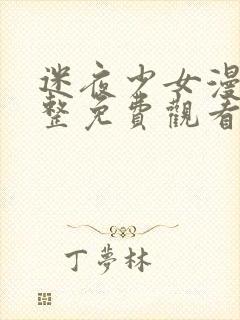 迷夜少女漫
整免費觀看
丁夢林